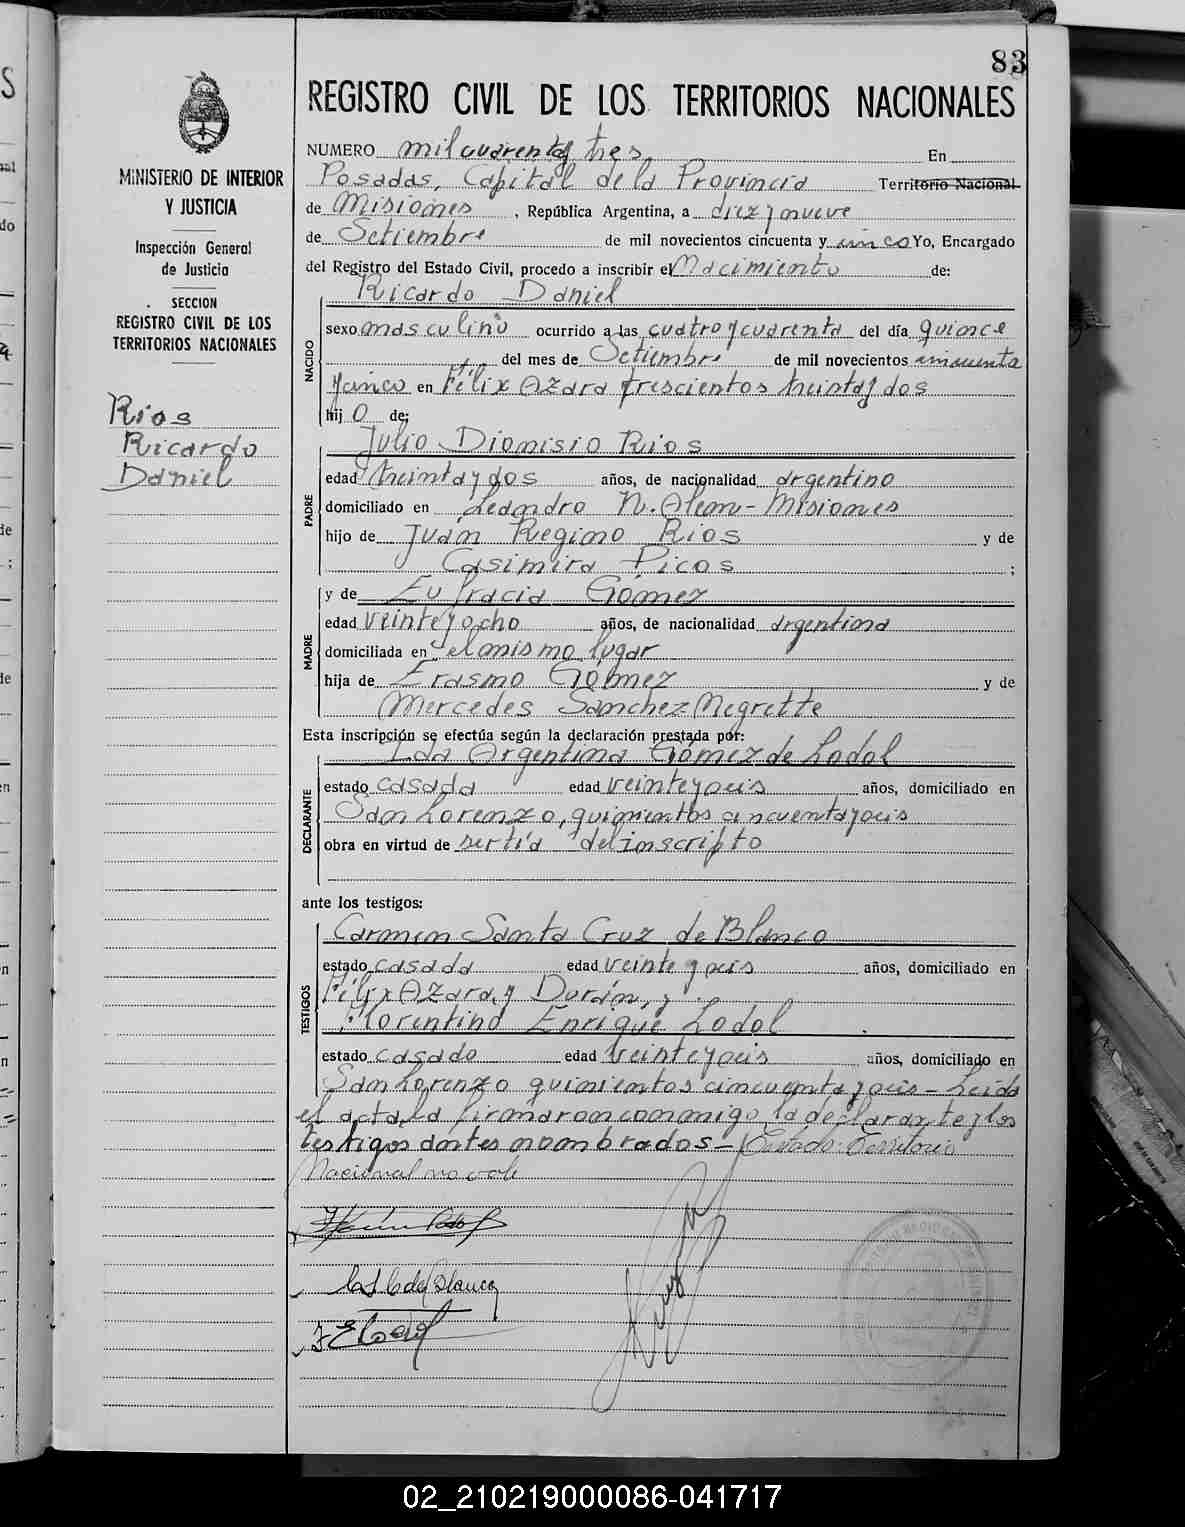 83
REGISTRO CIVIL DE LOS TERRITORIOS NACIONALES
MINISTERIO DE INTERIOR
Y JUSTICIA
Inspección General
de Justicia
SECCION
REGISTRO CIVIL DE LOS
TERRITORIOS NACIONALES
Rios
Ricardo
Daniel
NUMERO mil cuarenta y tres En
Posadas, Capital de la Provincia Territorio Nacional
de Misiones, República Argentina, a diez y nueve
de Setiembre de mil novecientos cincuenta y cinco Yo, Encargado
del Registro del Estado Civil, procedo a inscribir el Nacimiento de:
NACIDO
Ricardo Daniel
sexo masculino ocurrido a las cuatro y cuarenta del día quince
del mes de Setiembre de mil novecientos cincuenta
y cinco en Félix Azara trescientos treinta y dos
hij o de;
PADRE
Julio Dionisio Rios
edad treinta y dos años, de nacionalidad argentino
domiciliado en Leandro N. Alem - Misiones
hijo de Juan Regino Rios y de
Casimira Picos ;
MADRE
y de Eufracia Gómez
edad veinte y ocho años, de nacionalidad argentina
domiciliada en el mismo lugar
hija de Erasmo Gómez y de
Mercedes Sanchez Negrette
Esta inscripción se efectúa según la declaración prestada por:
DECLARANTE
Ida Argentina Gómez de Lodol
estado casada edad veinte y seis años, domiciliado en
San Lorenzo, quinientos cincuenta y seis
obra en virtud de ser tía del inscripto
ante los testigos:
TESTIGOS
Carmen Santa Cruz de Blanco
estado casada edad veinte y seis años, domiciliado en
Félix Azara y Durán, y
Florentino Enrique Lodol
estado casado edad veinte y seis años, domiciliado en
San Lorenzo quinientos cincuenta y seis - Leida
el acta la firmaron conmigo la declarante y los
testigos antes nombrados - Testado: Territorio
Nacional no vale
C. S. C. de Blanco
F E Lodol
02_210219000086-041717